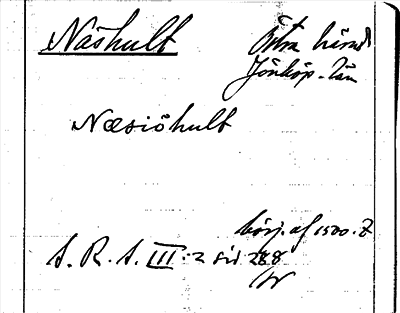 Näshult Östra härad
Jönköp. län
Næsiöhult
börj. af 1500.t
S. R. S. III: 2 sid 288